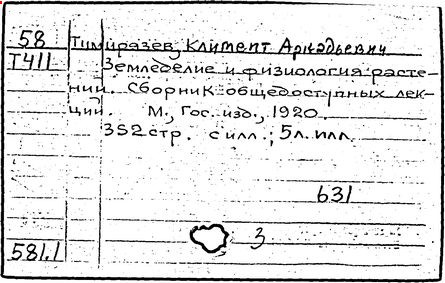 58 Тимирязев, Климент Аркадьевич
Т411 Земледелие и физиология расте-
ний. Сборник общедоступных лек-
ций. М., Гос. изд., 1920.
352 стр. с илл.; 5 л. илл.
631
3
581.1